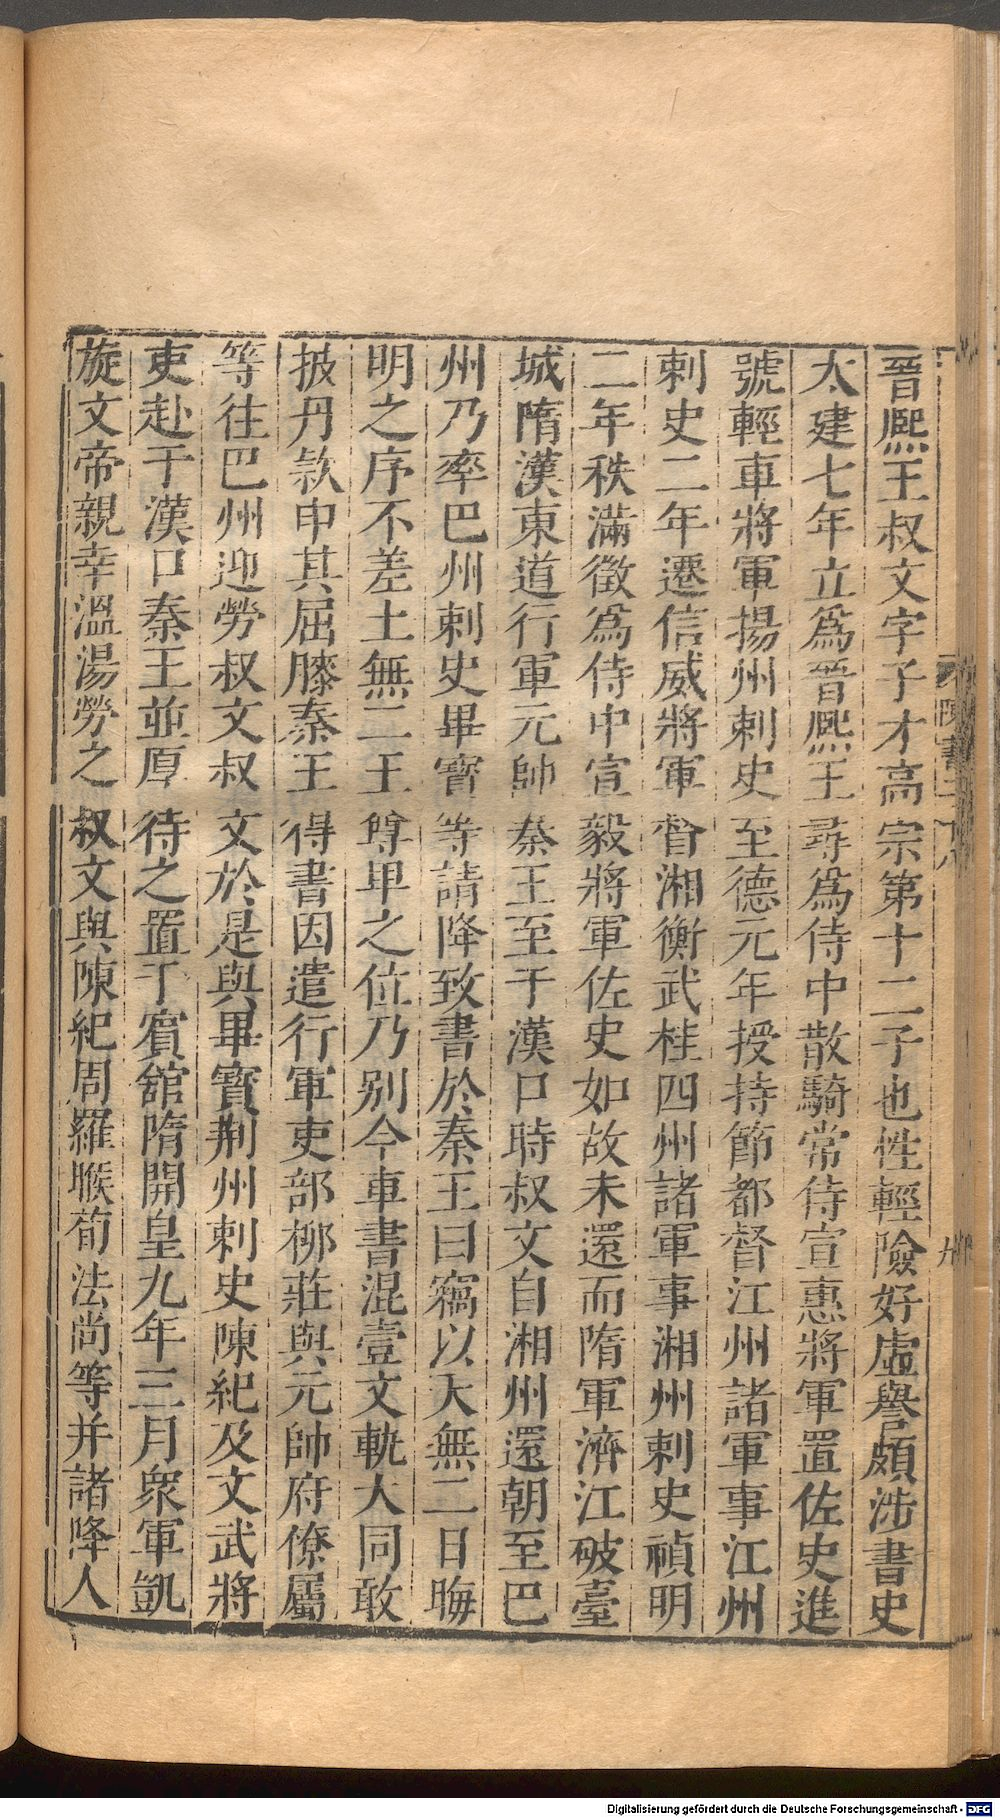 晉熈王叔文字子才高宗第十二子也性輕險好虛譽頗涉書史
太建七年立爲晉熈王尋爲侍中散騎常侍宣惠將軍置佐史進
號輕車將軍揚州刺史至德元年授持節都督江州諸軍事江州
刺史二年遷信威將軍督湘衡武桂四州諸軍事湘州刺史禎明
二年秩滿徵爲侍中宣毅將軍佐史如故未還而隋軍濟江破臺
城隋漢東道行軍元帥秦王至于漢口時叔文自湘州還朝至巴
州乃率巴州刺史畢寳等請降致書於秦王曰竊以天無二日晦
明之序不差土無二王尊卑之位乃别今車書混壹文軌大同敢
披丹款申其屈膝秦王得書因遣行軍吏部柳莊與元帥府僚屬
等往巴州迎勞叔文叔文於是與畢寳荆州刺史陳紀及文武將
吏赴于漢口秦王並厚待之置于賓舘隋開皇九年三月衆軍凱
旋文帝親幸溫湯勞之叔文與陳紀周羅睺荀法尚等并諸降人
Digitalisierung gefördert durch die Deutsche Forschungsgemeinschaft - DFG